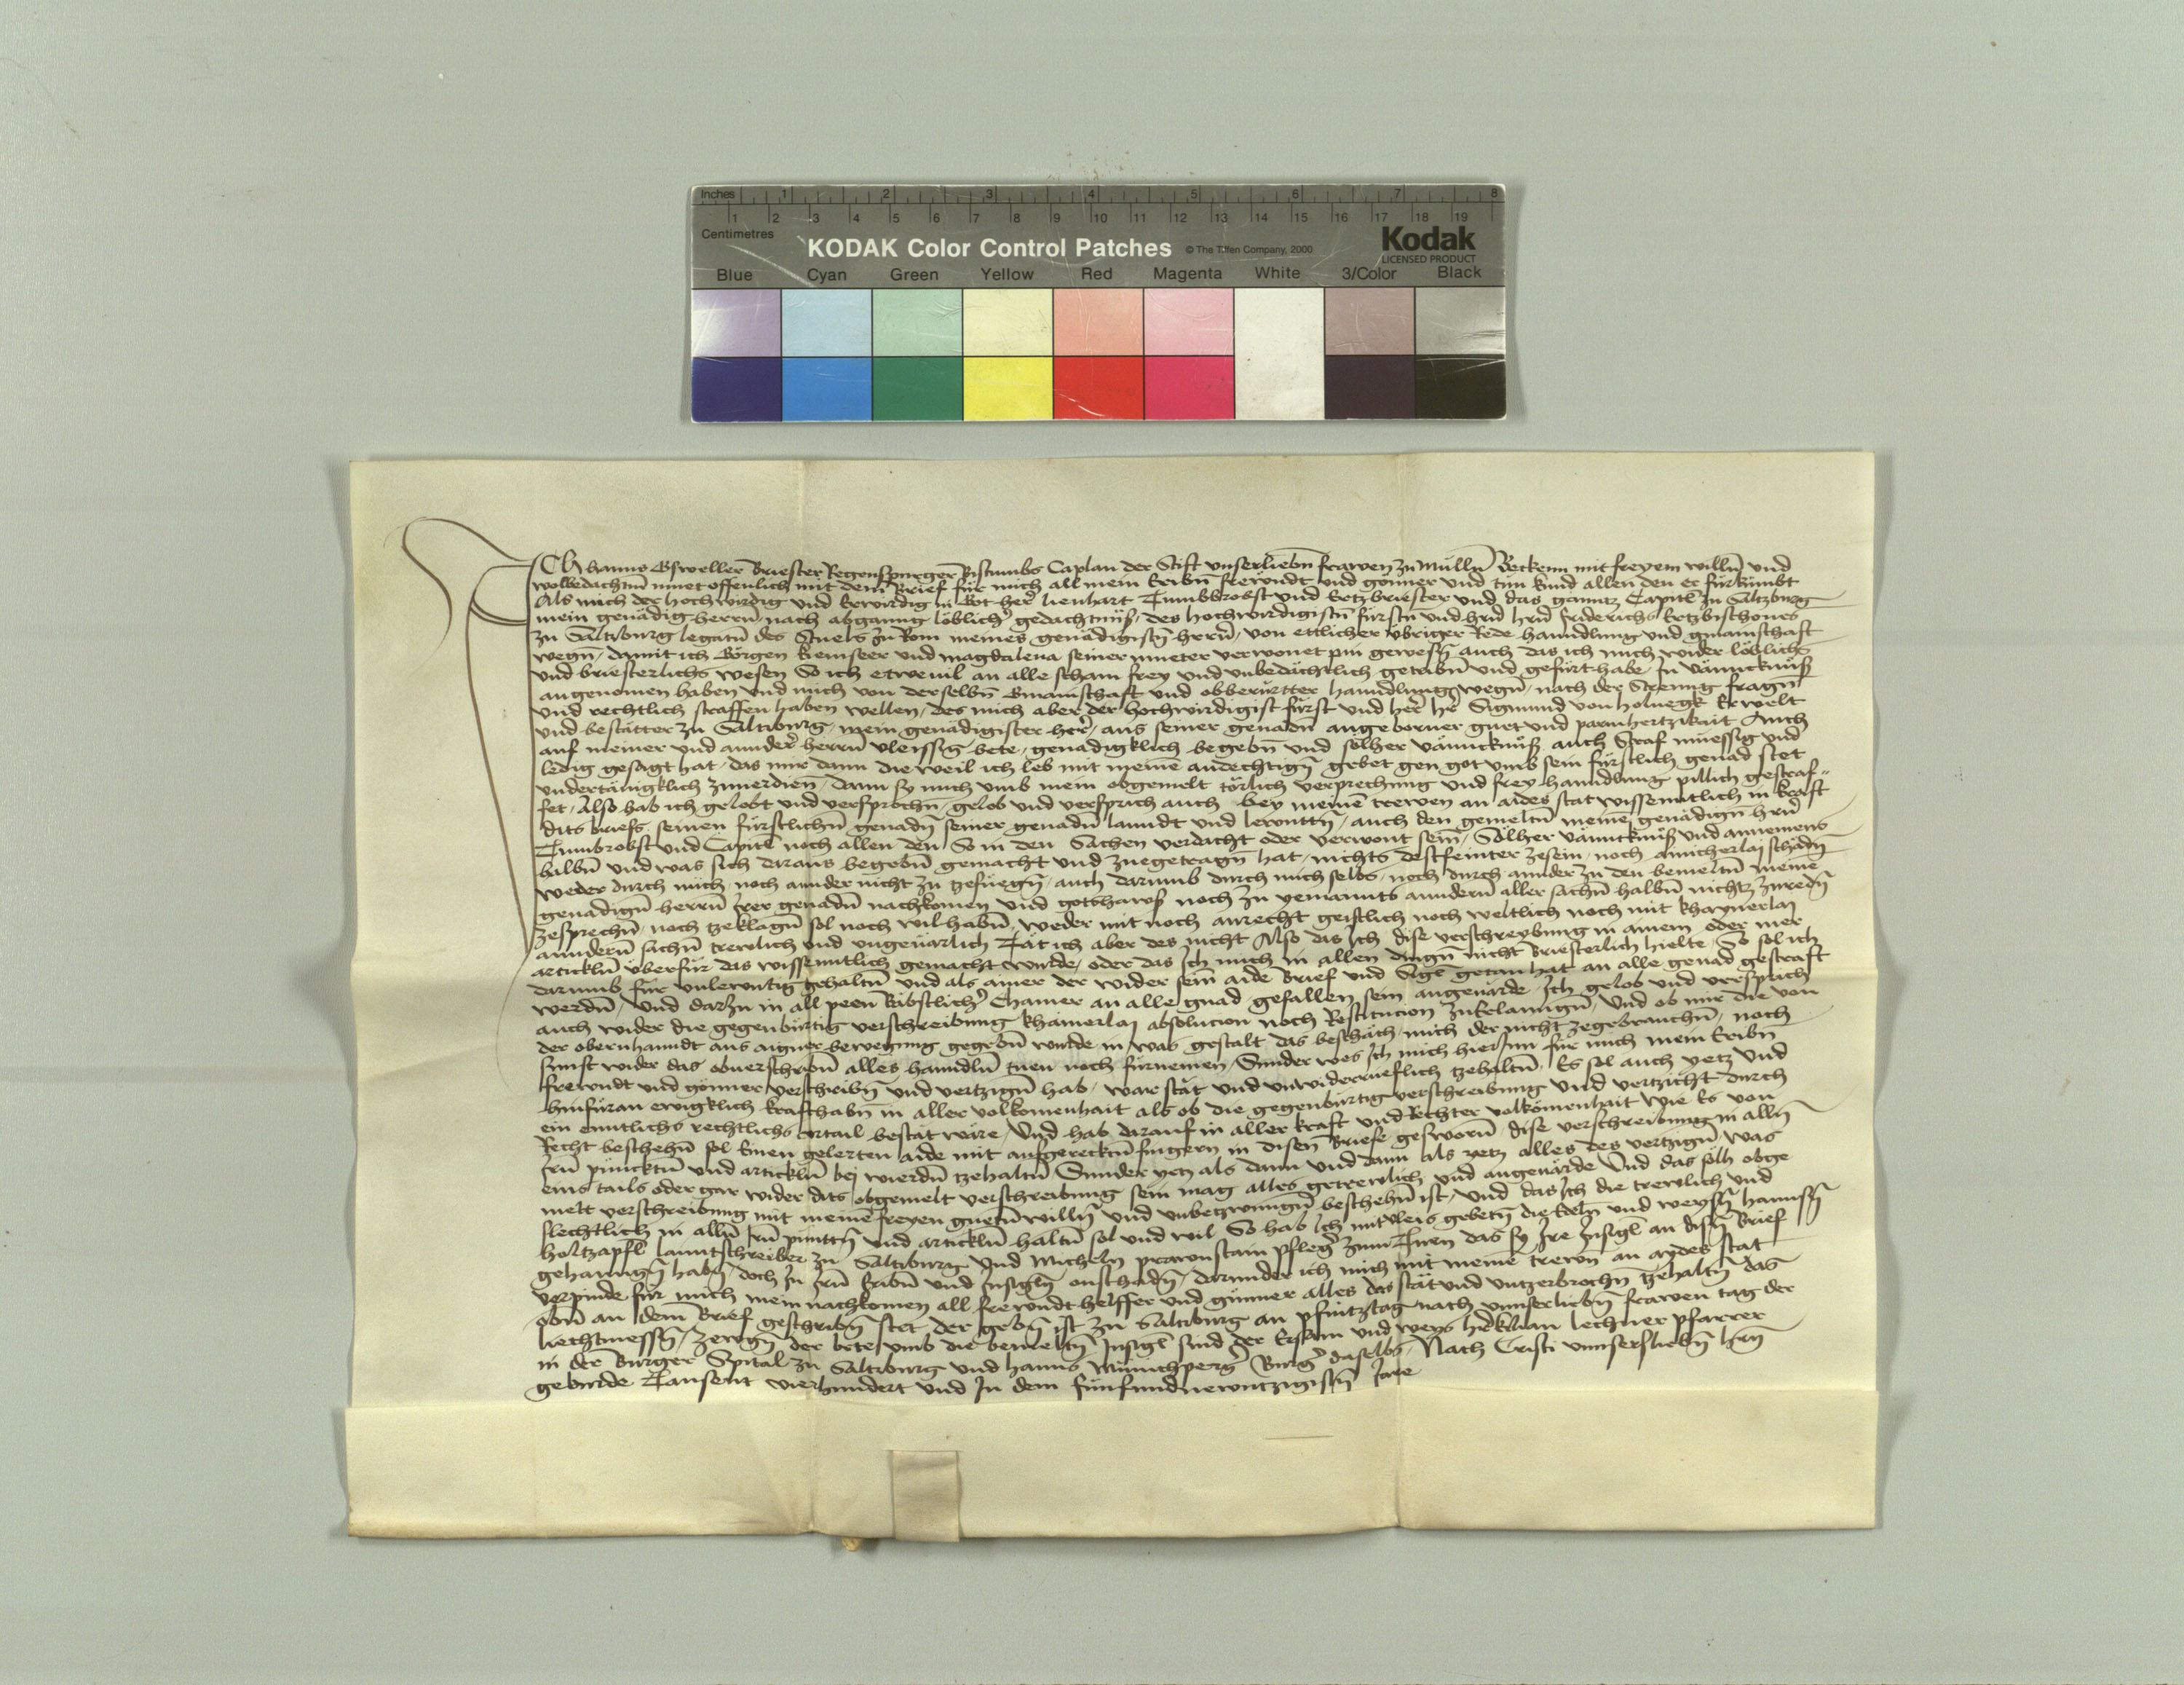 Inches 1 2 3 4 5 6 7 8
1 2 3 4 5 6 7 8 9 10 11 12 13 14 15 16 17 18 19
Centimetres
KODAK Color Control Patches © The Tiffen Company, 2000 Kodak
LICENSED PRODUCT
Blue Cyan Green Yellow Red Magenta White 3/Color Black
ICh hanns Gsweller Briester Regenspurger Bistumbs Caplan der Stift unserliebn̄ frawen zu Mülln̄ Bekenn mit freyem willn̄ und
wolbedachtm̄ muet offenlich mit dem Brief für mich all mein Eribn̄ frewndt und gönner und tun kund allen den er fürkumbt
Als mich der hochwirdig und Erwirdig in Got her lienhart Tumbbrobst und Ertzbriester und das ganntz Capitl zu Saltzburg
mein genädig herrn̄ nach abganng löblicher gedachtnüß, des hochwirdigistn̄ fürstn̄ und hrn̄ hrn̄ friderichs Ertzbischoues
zu Saltzburg legatn̄ des Stuels zu Rom meines genädigistn̄ herrn̄, von ettlicher übriger Rede hanndlung und gmainschaft
wegn̄, damit ich Görgen kemseer und magdalena seiner mueter verwonet pin gewesn̄ auch das ich mich wider löblichs
und briesterlichs wesen So ich etweuil an alle scham frey und unbedächtlich getribn̄ und gefürt habe In vänncknüß
angenomen haben und mich von derselbn̄ Gmainschaft und obberürtter hanndlung wegn̄, nach der Strenng fragn̄
und rechtlich straffen haben wellen, des mich aber der hochwirdigist fürst und her her Sigmund von holnegk Erwelt
und bestätter zu Saltzburg, mein genädigister her, aus seiner genadn̄ angeborner guet und parmhertzikait Auch
auf meiner und annder herrn̄ vleissig bete, genädigklich begebn̄ und solher vänncknüß auch Straf muessig und
ledig gesagt hat, das mir dann die weil ich leb mit meinē andechtign̄ gebet gen got umb sein fürstlich genad stet
undertänigklich zuuerdien̄, dann sy mich umb mein obgemelt törlich versprechung und frey hanndlung pillich gestraf„
fet, Also hab ich gelobt und versprochn̄, gelob und versprich auch bey meinē trewen an aides stat wissenntlich in kraft
dits briefs seinen fürstlichn̄ genadn̄ seiner genadn̄ lanndt und lewttn̄, auch den gemeltn̄ meinē genädign̄ hrn̄
Tumbrobst und Capitl noch allen den So in den Sachen verdacht oder verwont sein̄, Solher vänncknüß und annemens
halbn̄ und was sich daraus begebn̄ gemacht und zuegetragn̄ hat, nichts destseinter zesein, noch ainicherlai schadn̄
weder durch mich noch annder nicht zu tzefüegn̄, auch darumb durch mich selbs, noch durch annder zu den bemeltn̄ meinē
genädign̄ herrn̄ Irer genadn̄ nachkomen und gottshawß noch zu yemannts anndern̄ aller sachn̄ halbn̄ nichtz zuredn̄
zesprechn̄, noch tzeklagn̄ sol noch wil habn̄, weder mit noch anrecht geistlich noch weltlich noch mit khaynerlai
anndern̄ sachn̄ trewlich und ungeuärlich Tät ich aber des nicht Also das Ich dise verschreybung in ainem oder mer
articklin̄ überfür das wissenntlich gemacht wurde, oder das Ich mich in allen dingn̄ nicht Briesterlich hielte, So sol ich
darumb für unlewntig gehaltn̄ und als ainer der wider sein̄ aide Brief und Sigl getan hat an alle genad gestraft
werdn̄, Und darzu in all peen Bäbstlicher Chamer an alle gnad gefallen sein angeuärde, Ich gelob und versprich
auch wider die gegenbürtig verschreibung khainerlai absolucion noch Restitucion zuErlanngn̄, Und ob mir die von
der obernhanndt aus aigner bewegung gegebn̄ wurde in was gestalt das beschäch, mich der nicht zegebrauchn̄, noch
sunst wider das obuerschribn̄ alles hanndln̄ tuen noch fürnemen, Sunder wes Ich mich hierInn für mich mein Eribn̄
frewndt und gönner verschribn̄ und vertzign̄ hab, war stät und unwiderrueflich tzehaltn̄, Es sol auch yetz und
hinfüran ewigklich krafft habn̄ in aller volkomenhait als ob die gegenbürtig verschreibung und vertzicht durch
ein enntlichs rechtlichs urtail bestät wäre, Und hab darauf in aller kraft und Rechter volkomenhait wie Es von
Recht beschehn̄ sol Einen gelerten aide mit aufgerecktn̄ fingern in disen Briefe gesworn̄ dise verschreibung in alln̄
Irn̄ pünncktn̄ und articklin̄ bej wierdn̄ tzehaltn̄ Sunder yetz als dann und dann als yetz alles des vertzign̄ was
eins tails oder gar wider dits obgemelt verschreibung sein mag alles getrewlich und angeuärde Und das solh obge
melt verschreibung mit meinē freyen guetn̄ willn̄ und unbetzwungn̄ beschehn̄ ist, Und das Ich die trewlich und
slechtlich in alln̄ Irn̄ punttn̄ und articklin̄ haltn̄ sol und wil So hab Ich mit vleis gebetn̄ die Edln̄ und weysn̄ hannsn̄
holtzapfl lanntschreiber zu Saltzburg Und Micheln prawnstain pfleger zum Turn das sy Ire Insigl an disn̄ Brief
gehanngn̄ habn̄, doch In Irn̄ Eribn̄ und Insigln̄ onschadn̄, darunder ich mich mit meinē trewn̄ an aydes stat
verpinde für mich mein nachkomen all frewndt helffer und günner alles das stät und untzerbrochn̄ tzehaltn̄ das
obn̄ an dem Brief geschribn̄ stet der gebn̄ ist zu Saltzburg an pfintztag nach unnserliebn̄ frawen tag der
liechtmessn̄, Zewgn̄ der bete umb die bemeltn̄ Insigl sind der Ersam und weys her kilian lechner pfarrer
in der Burger Spital zu Saltzburg und hanns Münichperger Burger daselbs, Nach Cristi unnserslibn̄ hrn̄
geburde Tausent vierhundert und In dem fünfundnewntzigistn̄ Jare